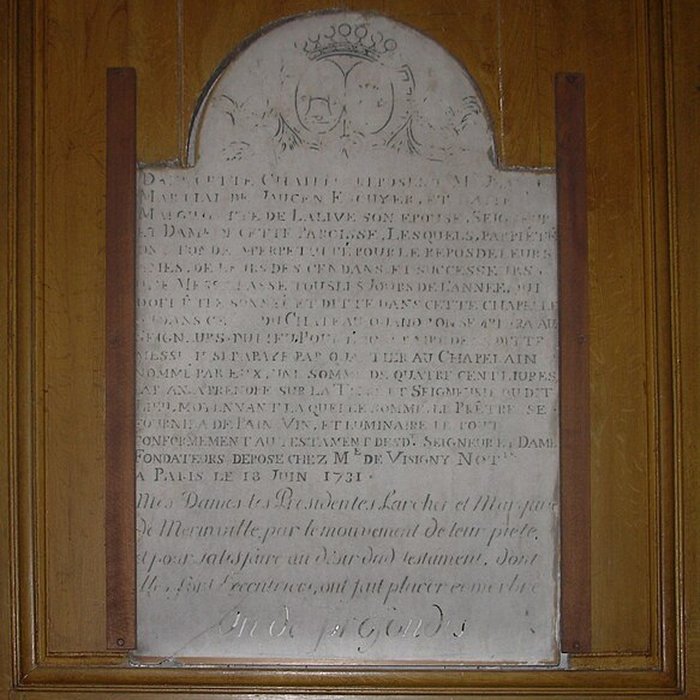 DANS CETTE CHAPELLE REPOSENT MRE
MARTIAL DE JAUCEN ESCUYER, ET DAME
MARGUERITTE DE LALIVE SON EPOUSE, SEIGNEUR
ET DAME DE CETTE PARCISSE, LESQUELS, PAR PIÉTÉ
ONT FONDÉ A PERPETUITÉ POUR LE REPOS DE LEURS
AMES, DE LEURS DESCENDANS, ET SUCCESSEURS
UNE MESSE BASSE TOUS LES JOURS DE L'ANNÉE, QUI
DOIT ÊTRE SONNÉE ET DITTE DANS CETTE CHAPELLE
DANS CELLE DU CHATEAU QUAND ON SE PLAIRA AU
SEIGNEURS DU LIEU, POUR L'HONORAIRE DE LADITTE
MESSE IL SERA PAYÉ PAR QUARTIER AU CHAPELAIN
NOMMÉ PAR EUX, UNE SOMME DE QUATRE CENT LIURES
PAR AN A PRENDRE SUR LA TERRE ET SEIGNEURIE DUDIT
LIEU, MOYENNANT LAQUELLE SOMME, LE PRÊTRE SE
FOURNIRA DE PAIN, VIN, ET LUMINAIRE LE TOUT
CONFORMEMENT AU TESTAMENT DESD. SEIGNEUR ET DAME
FONDATEURS, DEPOSÉ CHEZ ME DE VISIGNY NOTRE
A PARIS LE 18 JUIN 1731.
Mes Dames les Presidentes Larcher et Marquise
de Merinville, par le mouvement de leur pieté,
et pour satisfaire au désir dud. testament, dont
elles sont Executrices, ont fait placer ce marbre
Un de profondis